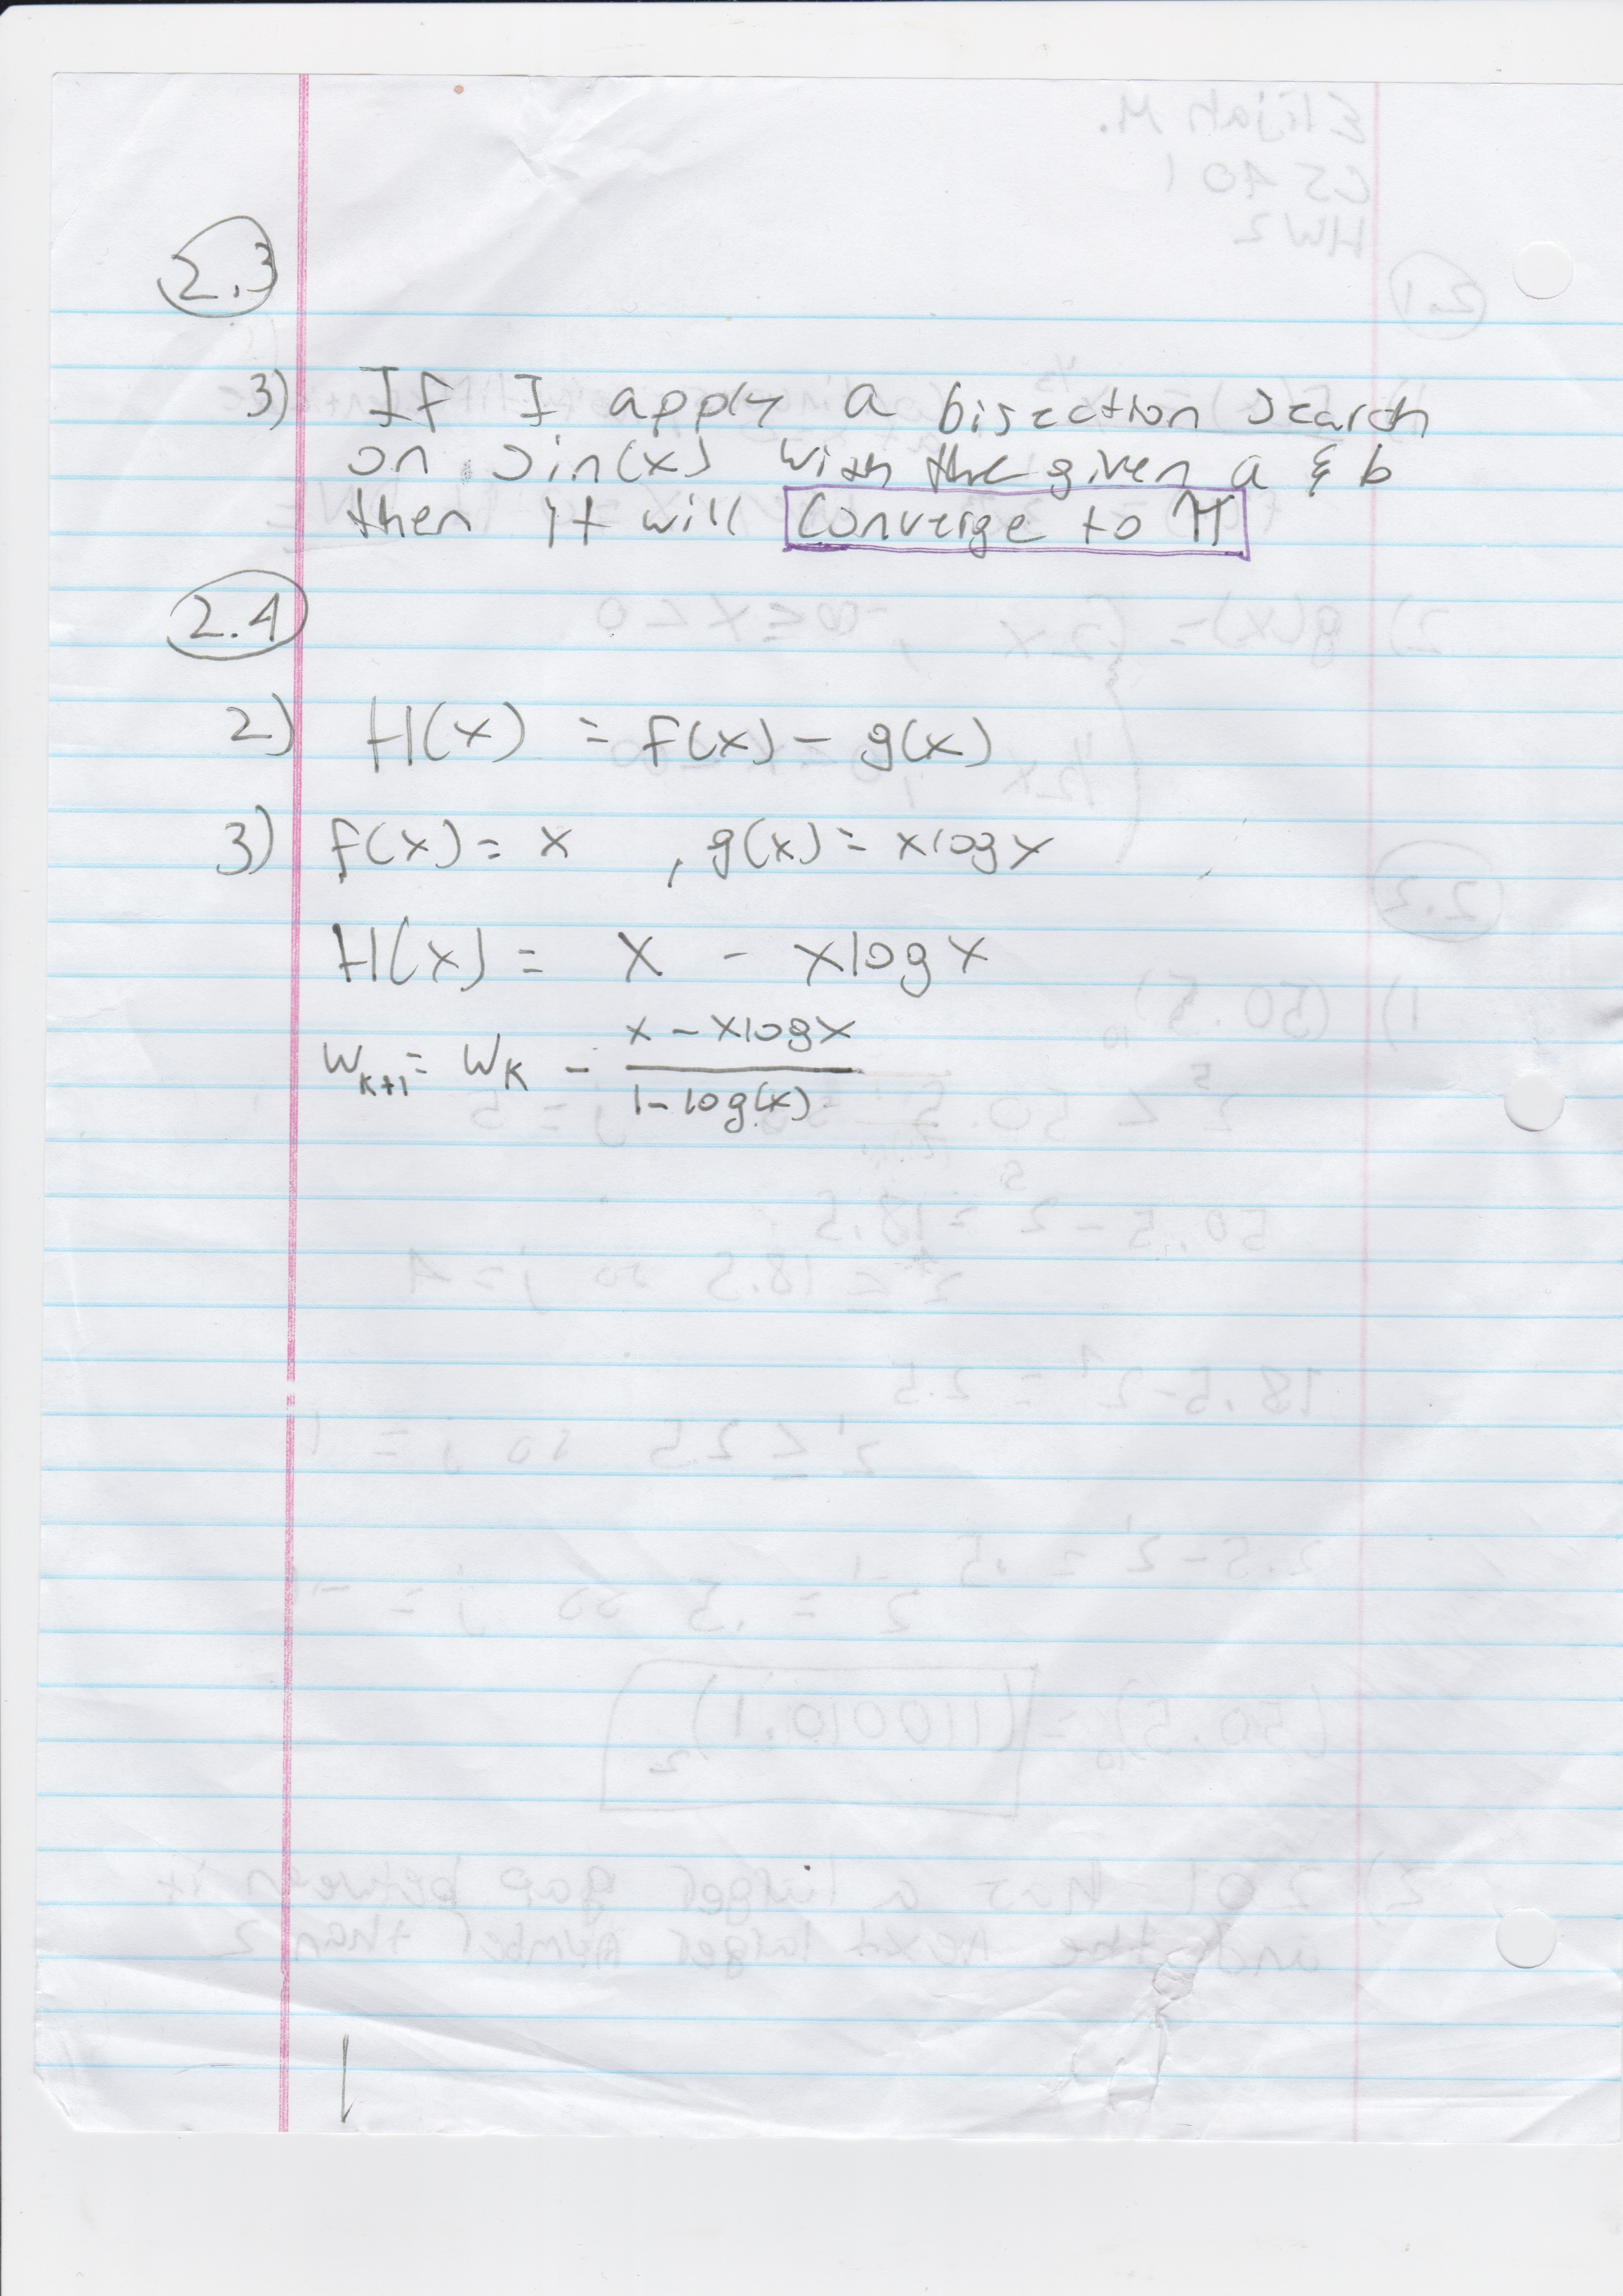 2.3
3) If I apply a bisection search
on sin(x) with the given a & b
then it will Converge to π
2.4
2) H(x) = f(x) - g(x)
3) f(x) = x , g(x) = xlogx
H(x) = x - xlogx
W_{k+1} = W_k - \frac{x - xlogx}{1 - log(x)}